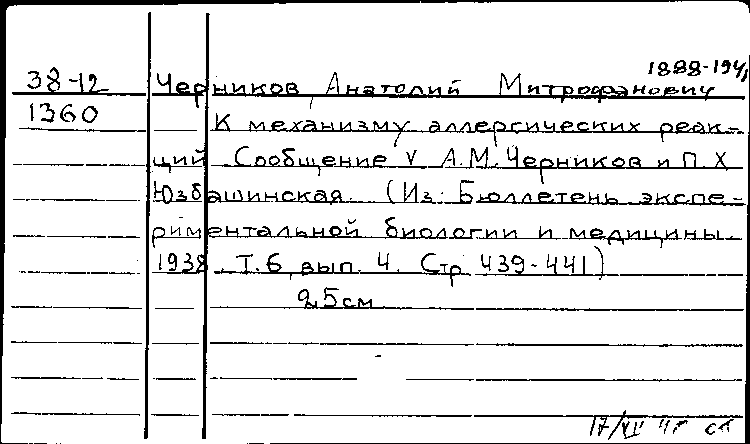 1888-194
38-12 Черников, Анатолий Митрофанович
1360 К механизму аллергических реак-
ций Сообщение V А.М. Черников и П.Х
Юзбашинская. (Из: Бюллетень экспе-
риментальной биологии и медицины.
1938. Т.6, вып. 4. Стр 439-441)
25см
17/VII